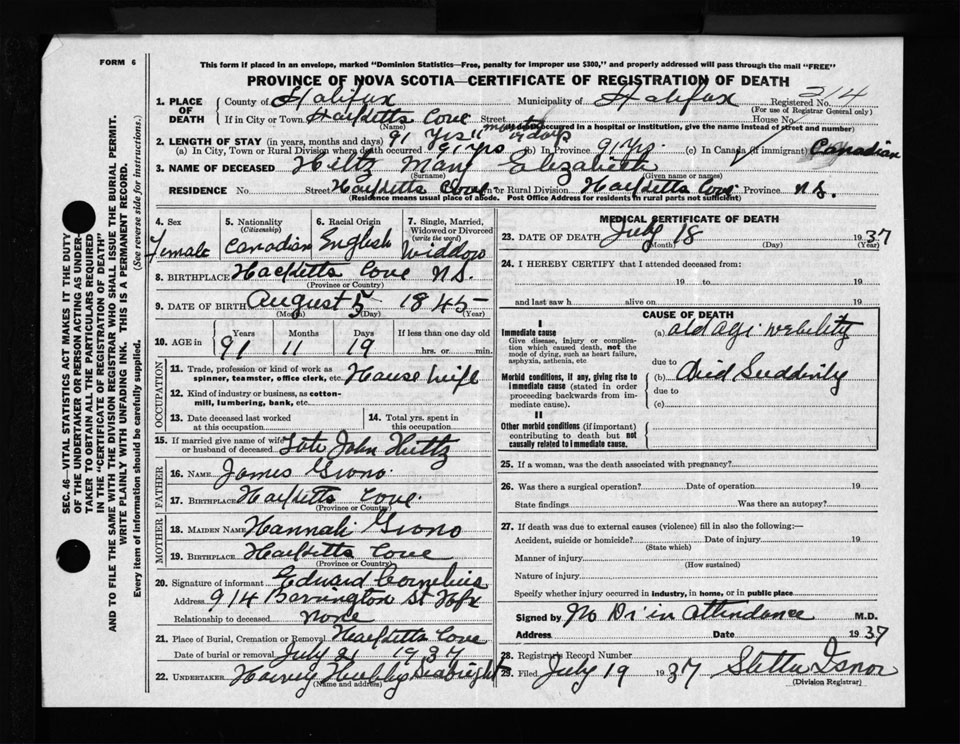 FORM 6
This form if placed in an envelope, marked "Dominion Statistics—Free, penalty for improper use $300," and properly addressed will pass through the mail "FREE"
PROVINCE OF NOVA SCOTIA—CERTIFICATE OF REGISTRATION OF DEATH
1. PLACE OF DEATH County of Halifax Municipality of Halifax Registered No. 314
(For use of Registrar General only)
If in City or Town Street House No.
(Name) (If death occurred in a hospital or institution, give the name instead of street and number)
2. LENGTH OF STAY (in years, months and days) 91 yrs 11 months days
(a) In City, Town or Rural Division where death occurred 91 yrs (b) In Province 91 yrs. (c) In Canada (if immigrant) Canadian
3. NAME OF DECEASED Hiltz Mary Elizabeth
(Surname) (Given name or names)
RESIDENCE No. Street Cove or Rural Division Cove Province N.S.
(Residence means usual place of abode. Post Office Address for residents in rural parts not sufficient)
4. Sex Female
5. Nationality (Citizenship) Canadian
6. Racial Origin English
7. Single, Married, Widowed or Divorced (write the word) Widdow
8. BIRTHPLACE Cove N.S.
(Province or Country)
9. DATE OF BIRTH August 5 1845
(Month) (Day) (Year)
10. AGE in Years 91 Months 11 Days 19 If less than one day old hrs. or min.
OCCUPATION
11. Trade, profession or kind of work as spinner, teamster, office clerk, etc. House wife
12. Kind of industry or business, as cotton-mill, lumbering, bank, etc.
13. Date deceased last worked at this occupation
14. Total yrs. spent in this occupation
15. If married give name of wife or husband of deceased Late John
FATHER
16. NAME James Grono
17. BIRTHPLACE Cove
(Province or Country)
MOTHER
18. MAIDEN NAME Hannah Grono
19. BIRTHPLACE Cove
(Province or Country)
20. Signature of informant Edward Cornelius
Address 914 Barrington St Hfx
Relationship to deceased None
21. Place of Burial, Cremation or Removal Cove
Date of burial or removal July 21 1937
22. UNDERTAKER Harvey Hubley Seabright
(Name and address)
MEDICAL CERTIFICATE OF DEATH
23. DATE OF DEATH July 18 1937
(Month) (Day) (Year)
24. I HEREBY CERTIFY that I attended deceased from:
19 to 19
and last saw h alive on 19
CAUSE OF DEATH
I
Immediate cause
Give disease, injury or complication which caused death, not the mode of dying, such as heart failure, asphyxia, asthenia, etc
(a) old age
due to
Morbid conditions, if any, giving rise to immediate cause (stated in order proceeding backwards from immediate cause).
(b) Died Suddenly
due to
(c)
II
Other morbid conditions (if important) contributing to death but not causally related to immediate cause.
25. If a woman, was the death associated with pregnancy?
26. Was there a surgical operation? Date of operation 19
State findings Was there an autopsy?
27. If death was due to external causes (violence) fill in also the following:—
Accident, suicide or homicide? Date of injury 19
(State which)
Manner of injury
(How sustained)
Nature of injury
Specify whether injury occurred in industry, in home, or in public place
Signed by No Dr in attendance M.D.
Address Date 1937
28. Registrar's Record Number
29. Filed July 19 1937 Stella Isnor
(Division Registrar)
SEC. 46—VITAL STATISTICS ACT MAKES IT THE DUTY
OF THE UNDERTAKER OR PERSON ACTING AS UNDER-
TAKER TO OBTAIN ALL THE PARTICULARS REQUIRED
IN THE "CERTIFICATE OF REGISTRATION OF DEATH"
AND TO FILE THE SAME WITH THE DIVISION REGISTRAR WHO SHALL ISSUE THE BURIAL PERMIT.
WRITE PLAINLY WITH UNFADING INK. THIS IS A PERMANENT RECORD.
Every item of information should be carefully supplied. (See reverse side for instructions.)